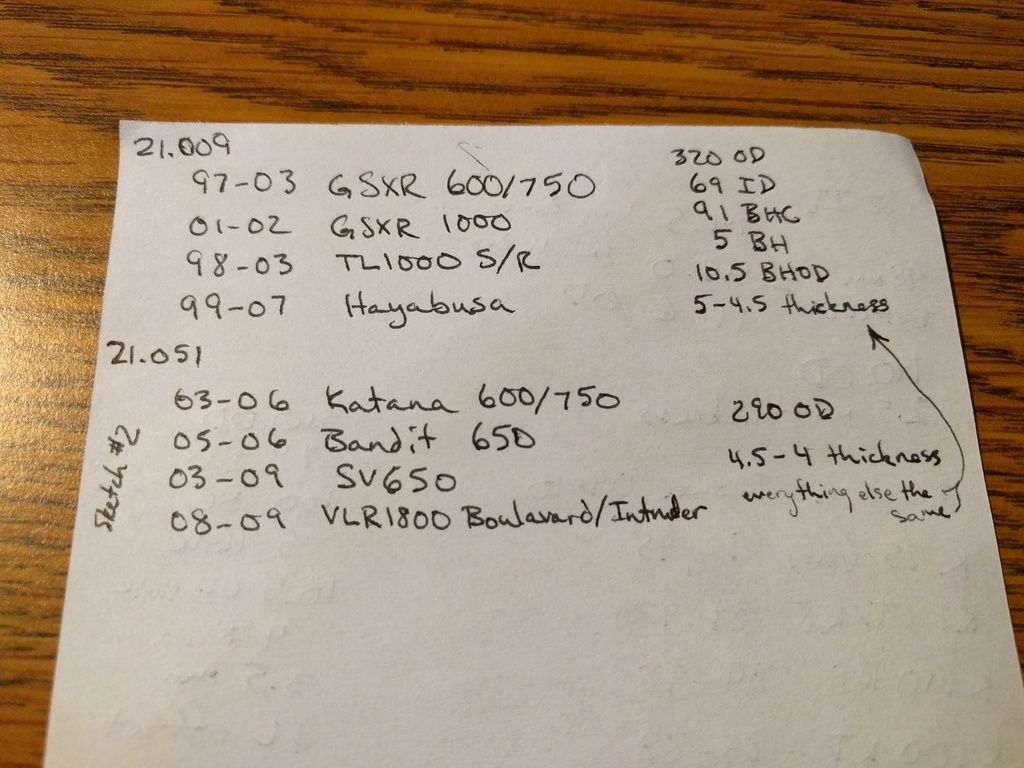 21.009
97-03 GSXR 600/750
01-02 GSXR 1000
98-03 TL1000 S/R
99-07 Hayabusa
320 OD
69 ID
91 BHC
5 BH
10.5 BHOD
5-4.5 thickness
21.051
Sketch #2
03-06 Katana 600/750
05-06 Bandit 650
03-09 SV650
08-09 VLR1800 Boulavard/Intruder
290 OD
4.5-4 thickness
everything else the
same